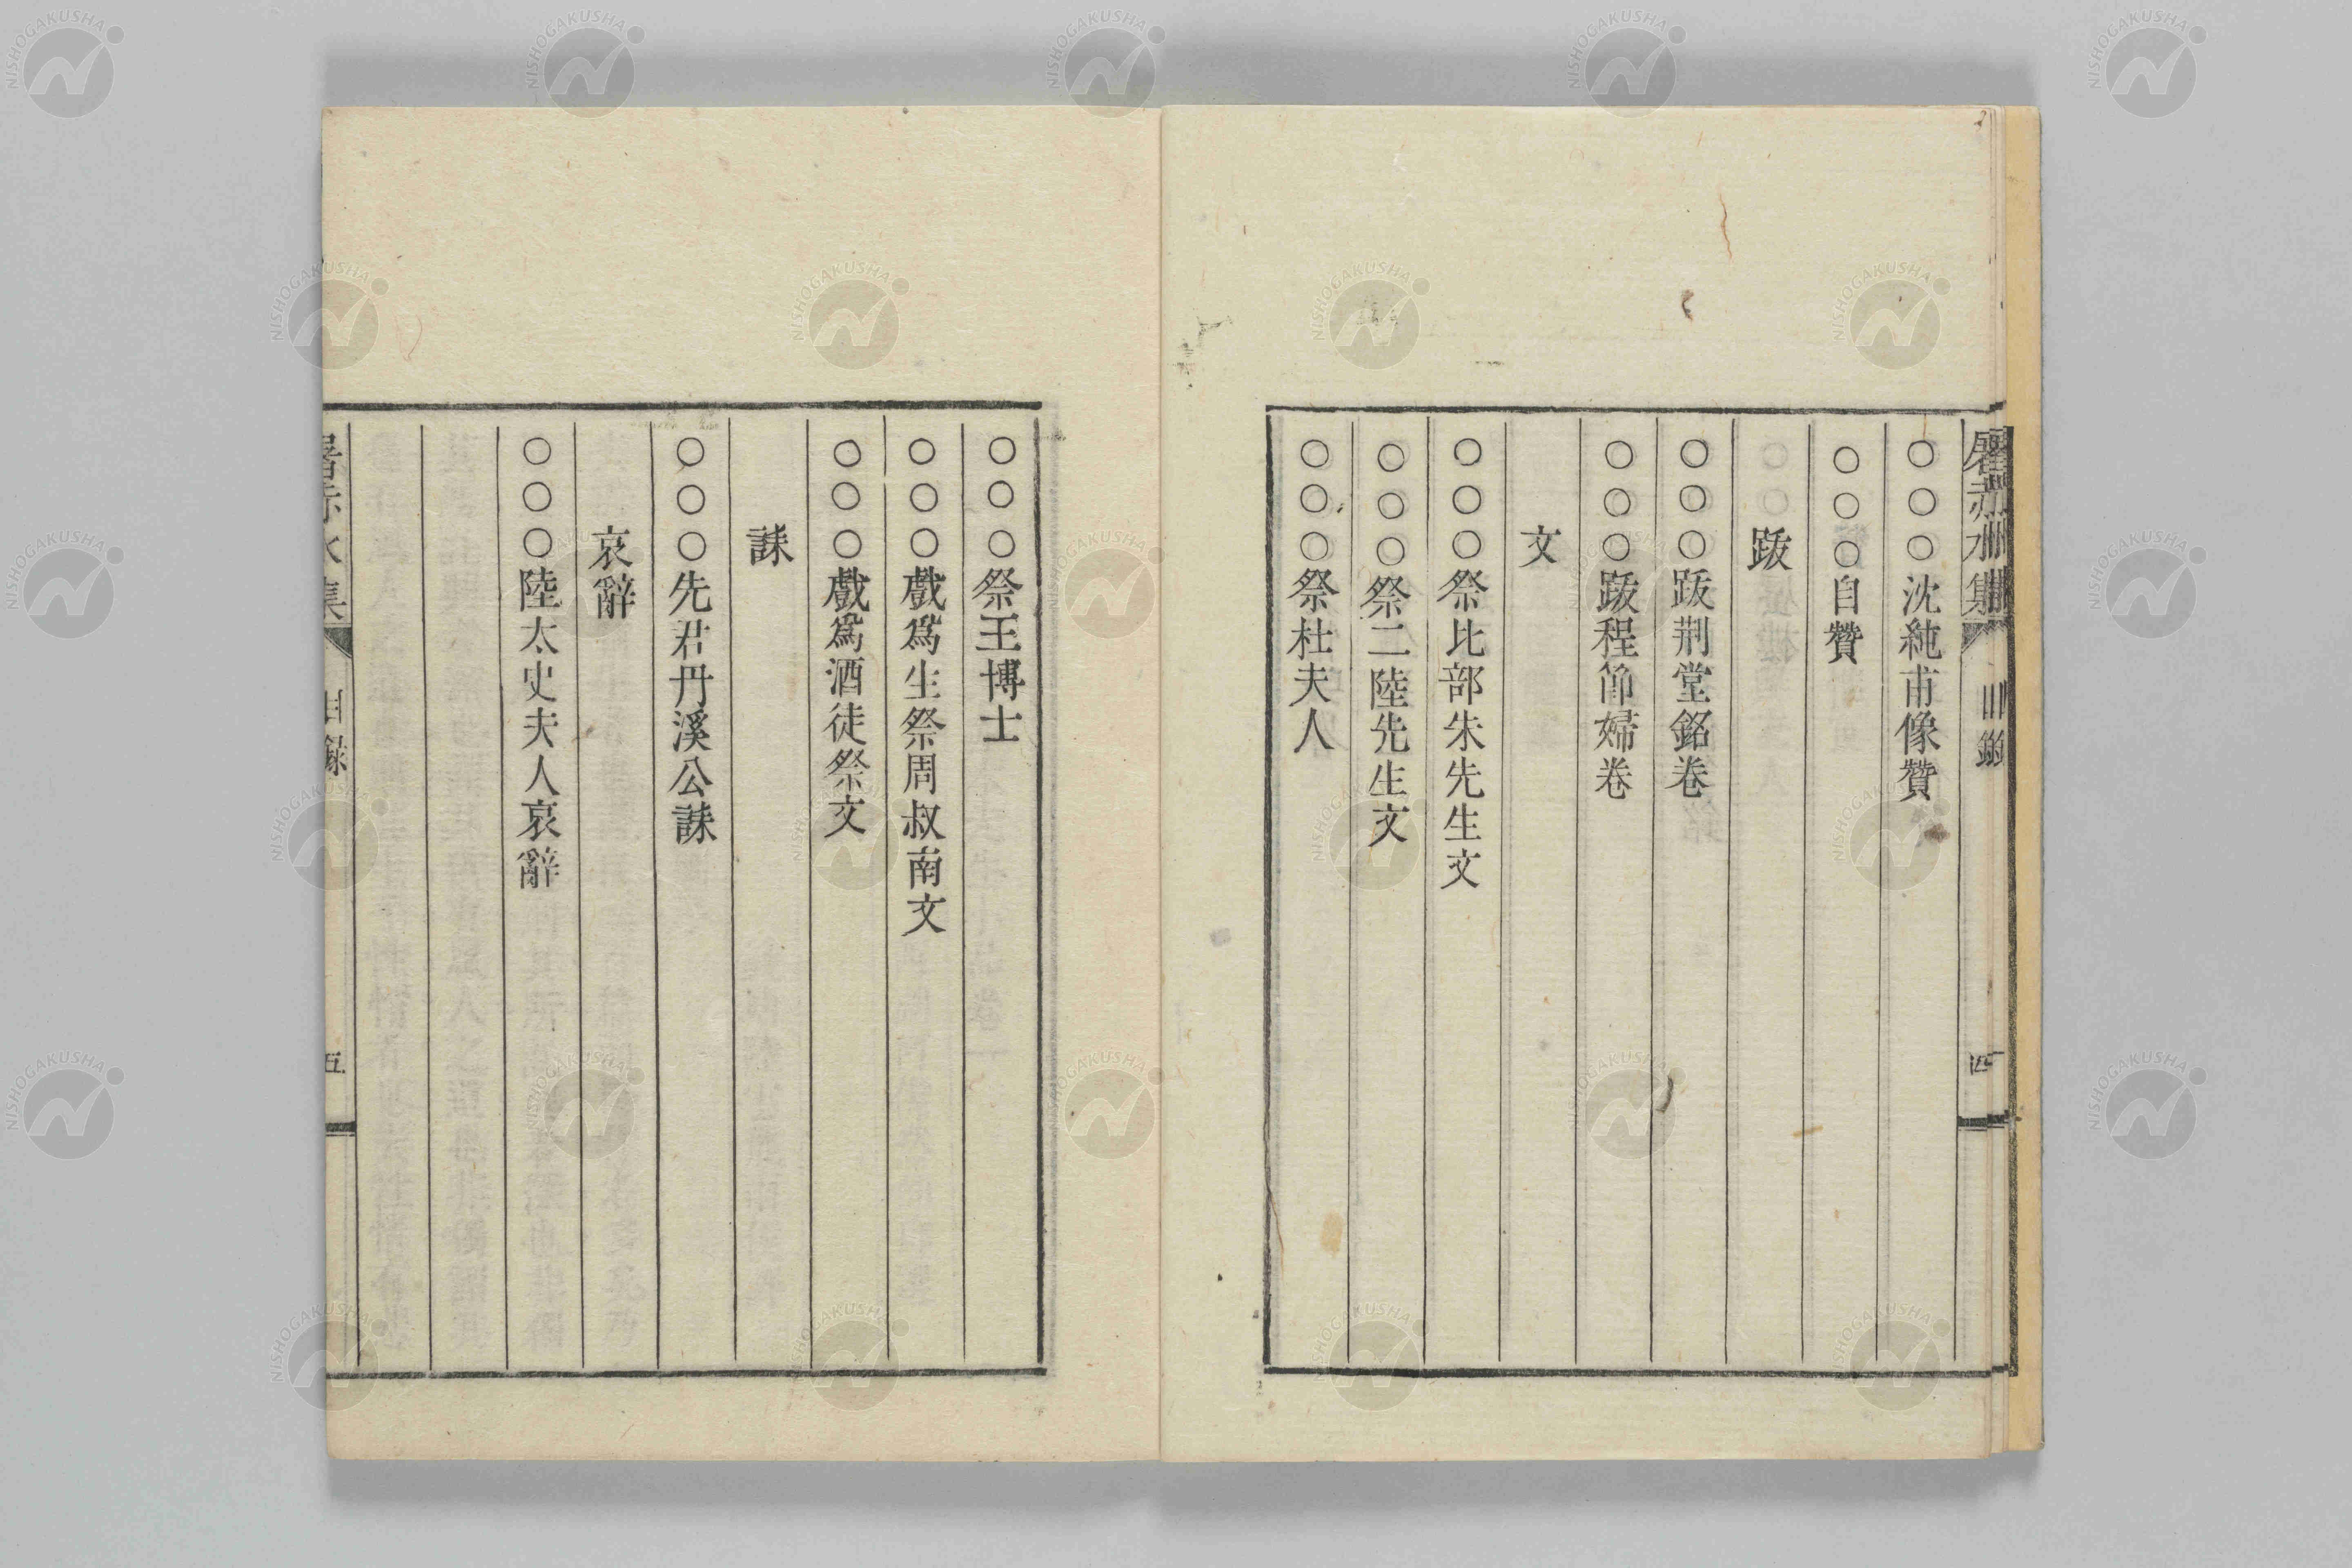 屠赤水集
目錄
四
○○○沈純甫像贊
○○○自贊
跋
○○○跋荆堂銘卷
○○○跋程節婦卷
文
○○○祭比部朱先生文
○○○祭二陸先生文
○○○祭杜夫人
○○○祭王博士
○○○戲爲生祭周叔南文
○○○戲爲酒徒祭文
誄
○○○先君丹溪公誄
哀辭
○○○陸太史夫人哀辭
屠赤水集
目錄
五
NISHOGAKUSHA